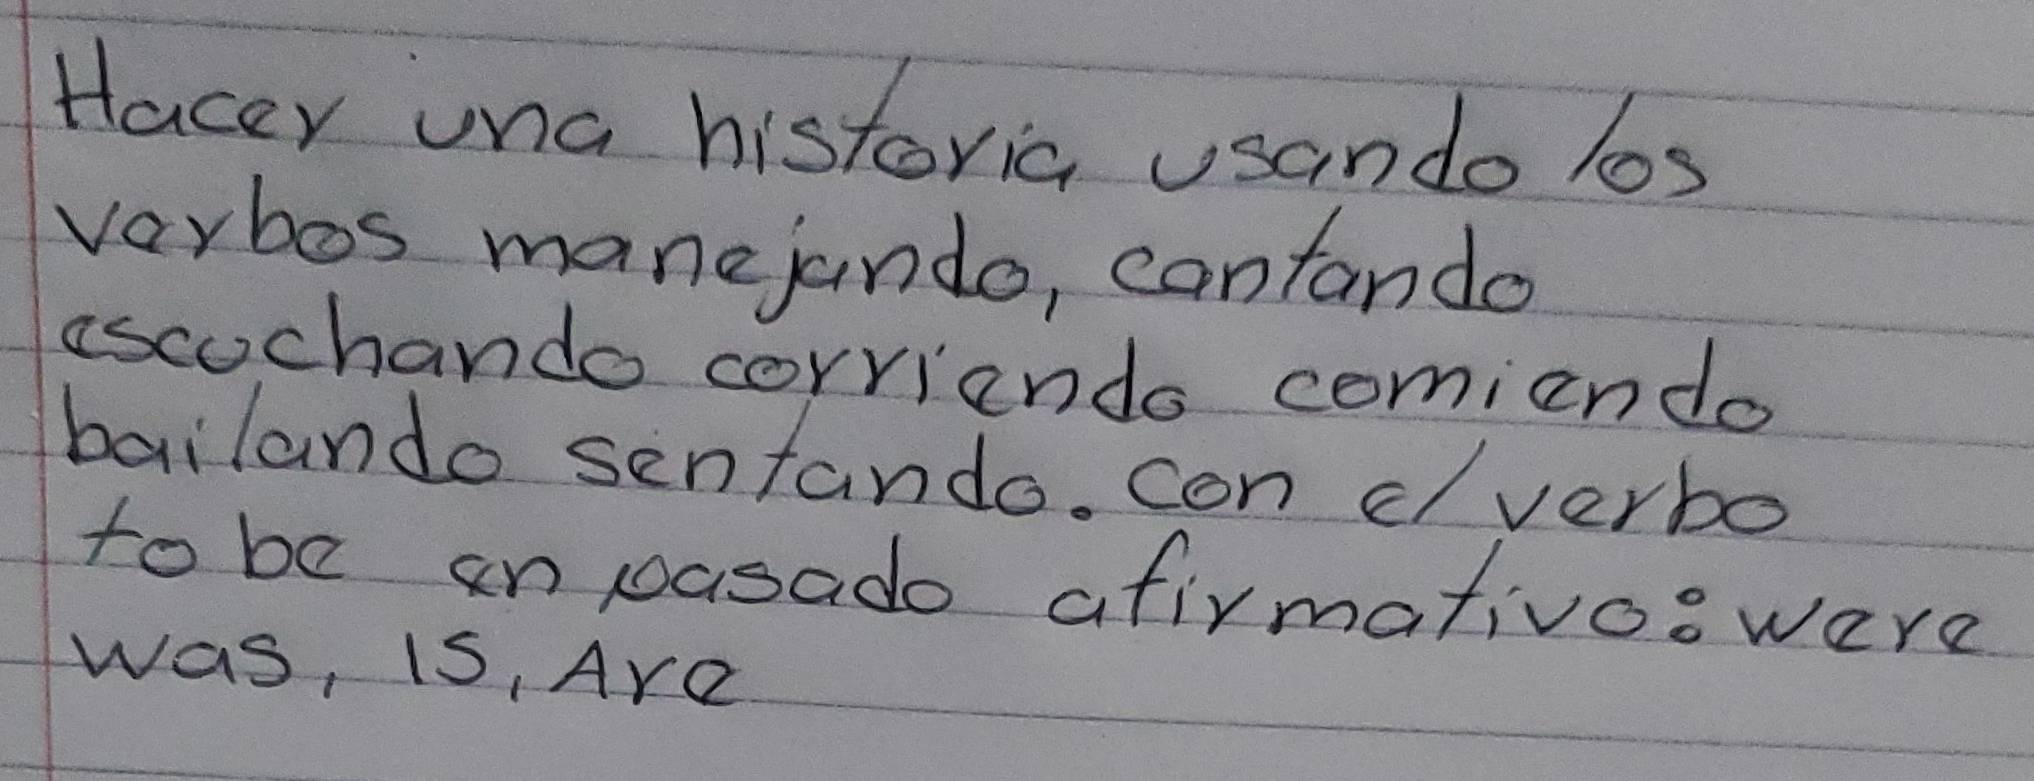 Hacer una historia usando los
verbos manejando, cantando
escuchando corriendo comiendo
bailando sentando. con el verbo
to be en pasado afirmativo: were
was, is, Are